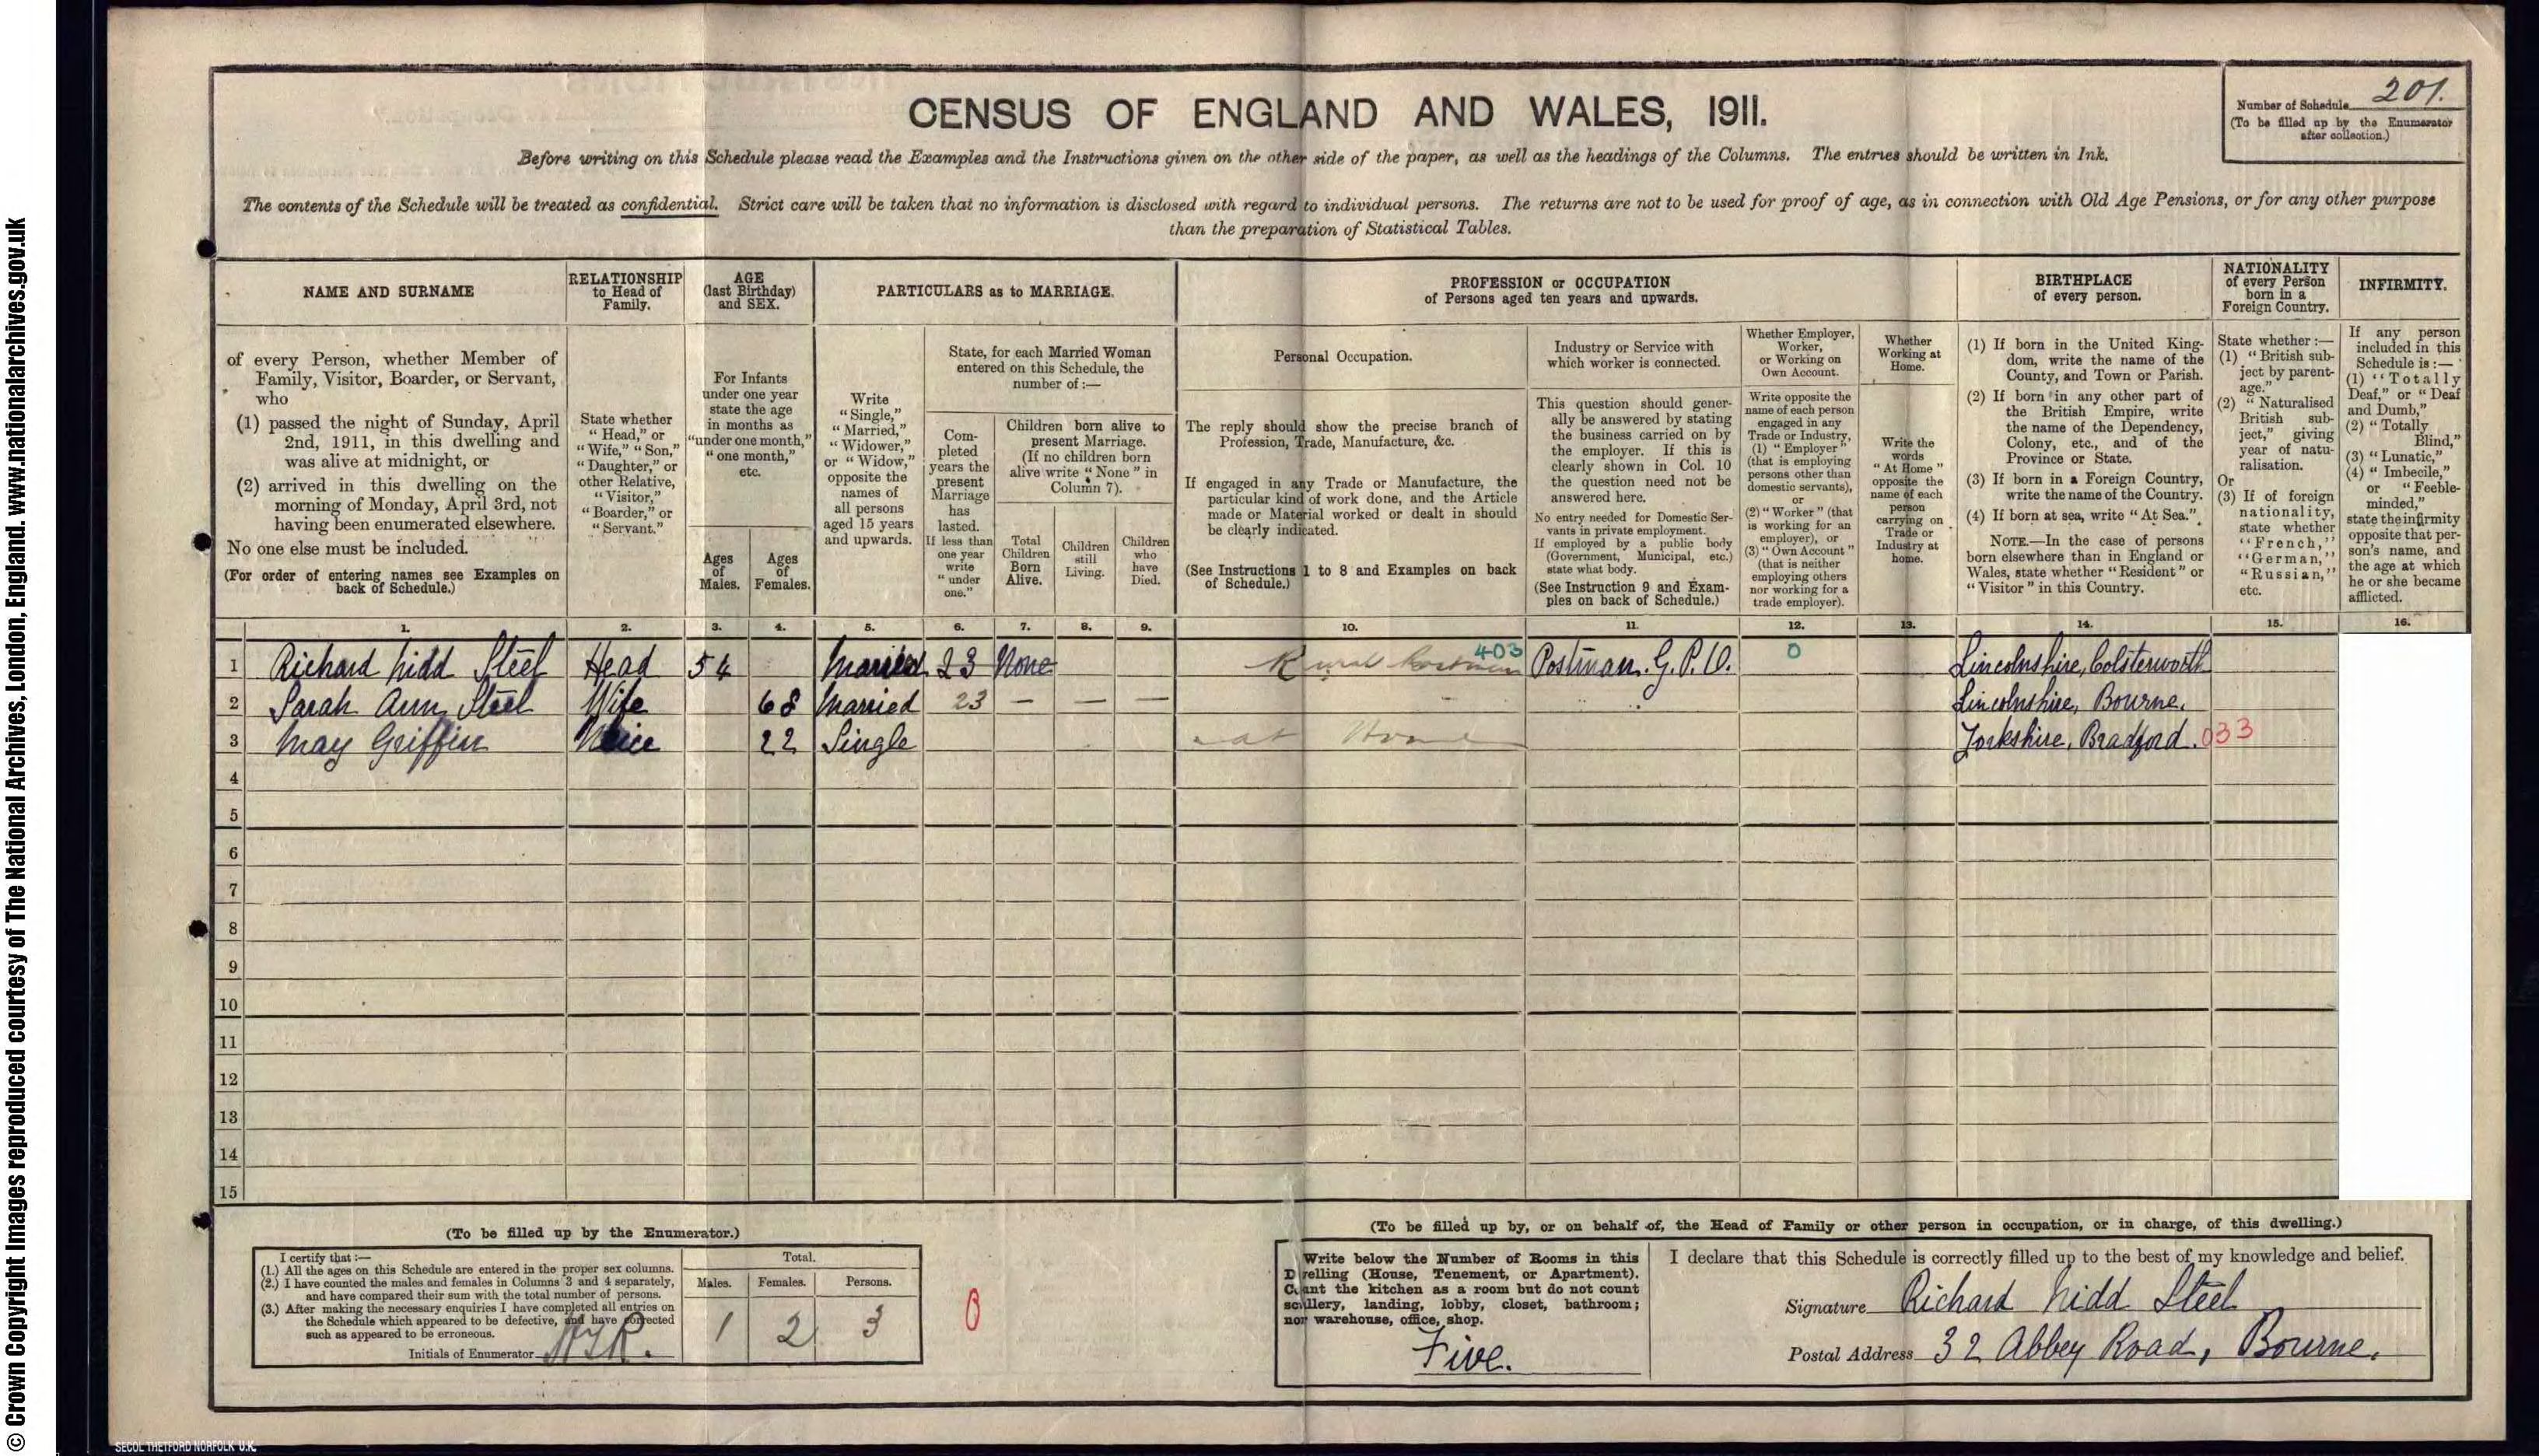 © Crown Copyright Images reproduced courtesy of The National Archives, London, England. www.nationalarchives.gov.uk
CENSUS OF ENGLAND AND WALES, 1911.
Number of Schedule 201.
(To be filled up by the Enumerator
after collection.)
Before writing on this Schedule please read the Examples and the Instructions given on the other side of the paper, as well as the headings of the Columns. The entries should be written in Ink.
The contents of the Schedule will be treated as confidential. Strict care will be taken that no information is disclosed with regard to individual persons. The returns are not to be used for proof of age, as in connection with Old Age Pensions, or for any other purpose
than the preparation of Statistical Tables.
NAME AND SURNAME
of every Person, whether Member of
Family, Visitor, Boarder, or Servant,
who
(1) passed the night of Sunday, April
2nd, 1911, in this dwelling and
was alive at midnight, or
(2) arrived in this dwelling on the
morning of Monday, April 3rd, not
having been enumerated elsewhere.
No one else must be included.
(For order of entering names see Examples on
back of Schedule.)
RELATIONSHIP
to Head of
Family.
State whether
"Head," or
"Wife," "Son,"
"Daughter," or
other Relative,
"Visitor,"
"Boarder," or
"Servant."
AGE
(last Birthday)
and SEX.
For Infants
under one year
state the age
in months as
"under one month,"
"one month,"
etc.
Ages
of
Males.
Ages
of
Females.
PARTICULARS as to MARRIAGE.
Write
"Single,"
"Married,"
"Widower,"
or "Widow,"
opposite the
names of
all persons
aged 15 years
and upwards.
State, for each Married Woman
entered on this Schedule, the
number of:—
Com-
pleted
years the
present
Marriage
has
lasted.
If less than
one year
write
"under
one."
Children born alive to
present Marriage.
(If no children born
alive write "None" in
Column 7).
Total
Children
Born
Alive.
Children
still
Living.
Children
who
have
Died.
PROFESSION or OCCUPATION
of Persons aged ten years and upwards.
Personal Occupation.
The reply should show the precise branch of
Profession, Trade, Manufacture, &c.
If engaged in any Trade or Manufacture, the
particular kind of work done, and the Article
made or Material worked or dealt in should
be clearly indicated.
(See Instructions 1 to 8 and Examples on back
of Schedule.)
Industry or Service with
which worker is connected.
This question should gener-
ally be answered by stating
the business carried on by
the employer. If this is
clearly shown in Col. 10
the question need not be
answered here.
No entry needed for Domestic Ser-
vants in private employment.
If employed by a public body
(Government, Municipal, etc.)
state what body.
(See Instruction 9 and Exam-
ples on back of Schedule.)
Whether Employer,
Worker,
or Working on
Own Account.
Write opposite the
name of each person
engaged in any
Trade or Industry,
(1) "Employer"
(that is employing
persons other than
domestic servants),
or
(2) "Worker" (that
is working for an
employer), or
(3) "Own Account"
(that is neither
employing others
nor working for a
trade employer).
Whether
Working at
Home.
Write the
words
"At Home"
opposite the
name of each
person
carrying on
Trade or
Industry at
home.
BIRTHPLACE
of every person.
(1) If born in the United King-
dom, write the name of the
County, and Town or Parish.
(2) If born in any other part of
the British Empire, write
the name of the Dependency,
Colony, etc., and of the
Province or State.
(3) If born in a Foreign Country,
write the name of the Country.
(4) If born at sea, write "At Sea."
NOTE.—In the case of persons
born elsewhere than in England or
Wales, state whether "Resident" or
"Visitor" in this Country.
NATIONALITY
of every Person
born in a
Foreign Country.
State whether:—
(1) "British sub-
ject by parent-
age."
(2) "Naturalised
British sub-
ject," giving
year of natu-
ralisation.
Or
(3) If of foreign
nationality,
state whether
"French,"
"German,"
"Russian,"
etc.
INFIRMITY.
If any person
included in this
Schedule is:—
(1) "Totally
Deaf," or "Deaf
and Dumb,"
(2) "Totally
Blind,"
(3) "Lunatic,"
(4) "Imbecile,"
or "Feeble-
minded,"
state the infirmity
opposite that per-
son's name, and
the age at which
he or she became
afflicted.
1. 2. 3. 4. 5. 6. 7. 8. 9. 10. 11. 12. 13. 14. 15. 16.
1 Richard Nidd Steel Head 54 Married 23 None Rural Postman 403 Postman. G.P.O. 0 Lincolnshire, Colsterworth
2 Sarah Ann Steel Wife 68 Married 23 — — — Lincolnshire, Bourne.
3 May Griffin Niece 22 Single at Home Yorkshire, Bradford. 033
4
5
6
7
8
9
10
11
12
13
14
15
(To be filled up by the Enumerator.)
I certify that:—
(1.) All the ages on this Schedule are entered in the proper sex columns.
(2.) I have counted the males and females in Columns 3 and 4 separately,
and have compared their sum with the total number of persons.
(3.) After making the necessary enquiries I have completed all entries on
the Schedule which appeared to be defective, and have corrected
such as appeared to be erroneous.
Initials of Enumerator
Total.
Males. Females. Persons.
1 2 3
0
(To be filled up by, or on behalf of, the Head of Family or other person in occupation, or in charge, of this dwelling.)
Write below the Number of Rooms in this
Dwelling (House, Tenement, or Apartment).
Count the kitchen as a room but do not count
scullery, landing, lobby, closet, bathroom;
nor warehouse, office, shop.
Five.
I declare that this Schedule is correctly filled up to the best of my knowledge and belief.
Signature Richard Nidd Steel
Postal Address 32 Abbey Road, Bourne.
SECOL THETFORD NORFOLK U.K.